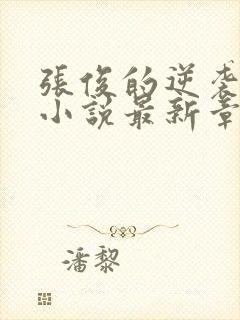 張俊的逆袭
小說最新章
潘黎